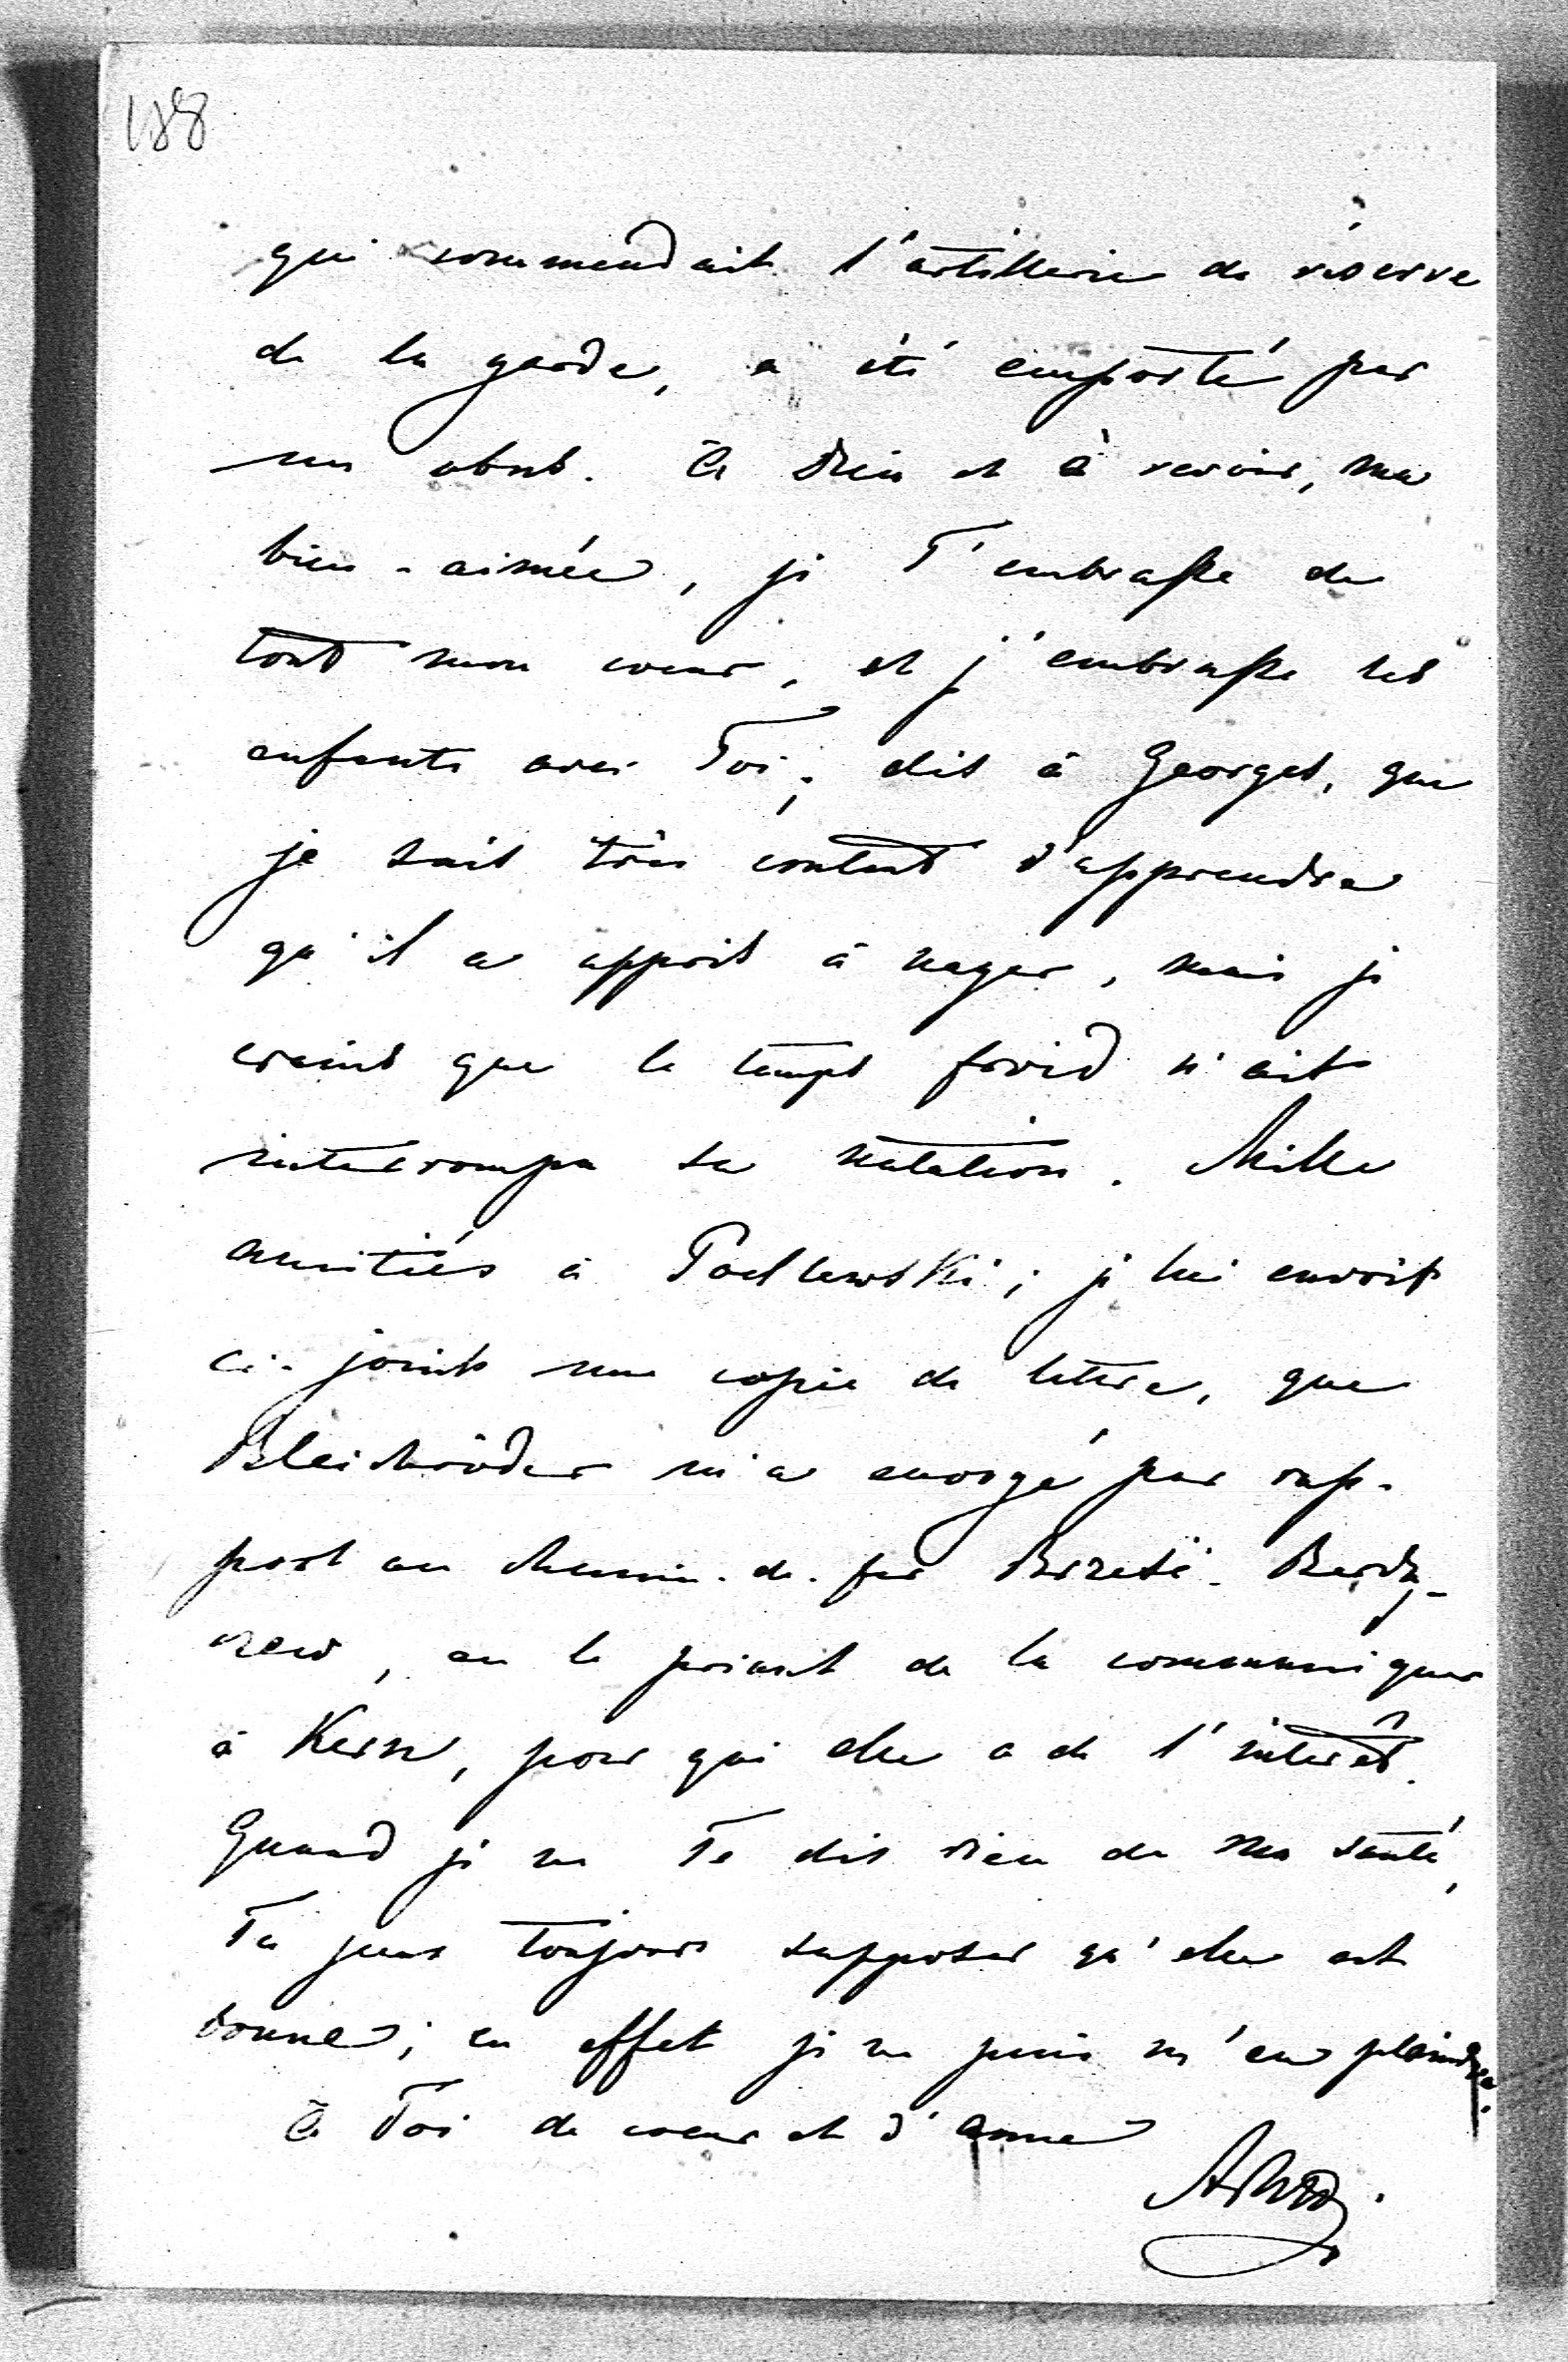 188
qui commendait l'artillerie de réserve
de la garde, a été emporté par
un obus. à Dieu et à revoir, ma
bien-aimée, je T'embrasse de
tout mon coeur, et j'embrasse les
enfants avec Toi; dis à Georges, que
je suis très content d'apprendre
qu'il a appris à nager, mais je
crains que le temps froid n'ait
interrompu sa natation. Mille
amitiés à Padlewski; je lui envois
ci-joint une copie de lettre, que
Bleichröder m'a envoyé par rap-
port au chemin-de-fer Brzesć-Berdy-
czew, en le priant de la communiquer
à Kern, pour qui elle a de l'intérêt.
Quand je ne Te dis rien de ma santé,
Tu peux toujours supposer qu'elle est
bonne; en effet je ne puis m'en plaindre.
à Toi de coeur et d'âme